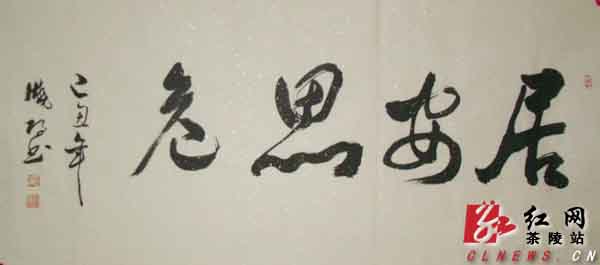 居安思危
己丑年
红网
茶陵站
GLNEWS.CN